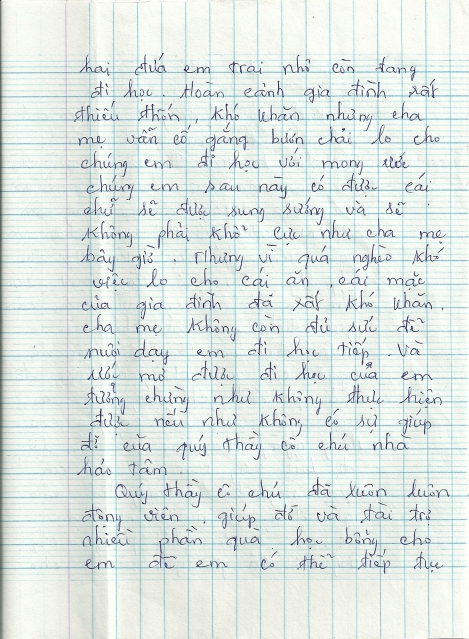 hai đứa em trai nhỏ còn đang
đi học. Hoàn cảnh gia đình rất
thiếu thốn, khó khăn nhưng cha
mẹ vẫn cố gắng bươn chải lo cho
chúng em đi học với mong ước
chúng em sau này có được cái
chữ sẽ được sung sướng và sẽ
không phải khổ cực như cha mẹ
bây giờ. Nhưng vì quá nghèo khó
việc lo cho cái ăn, cái mặc
của gia đình đã rất khó khăn.
cha mẹ không còn đủ sức để
nuôi dạy em đi học tiếp. Và
ước mơ được đi học của em
tưởng chừng như không thực hiện
được nếu như không có sự giúp
đỡ của quý thầy cô chú nhà
hảo tâm.
Quý thầy cô chú đã luôn luôn
động viên, giúp đỡ và tài trợ
nhiều phần quà học bổng cho
em để em có thể tiếp tục